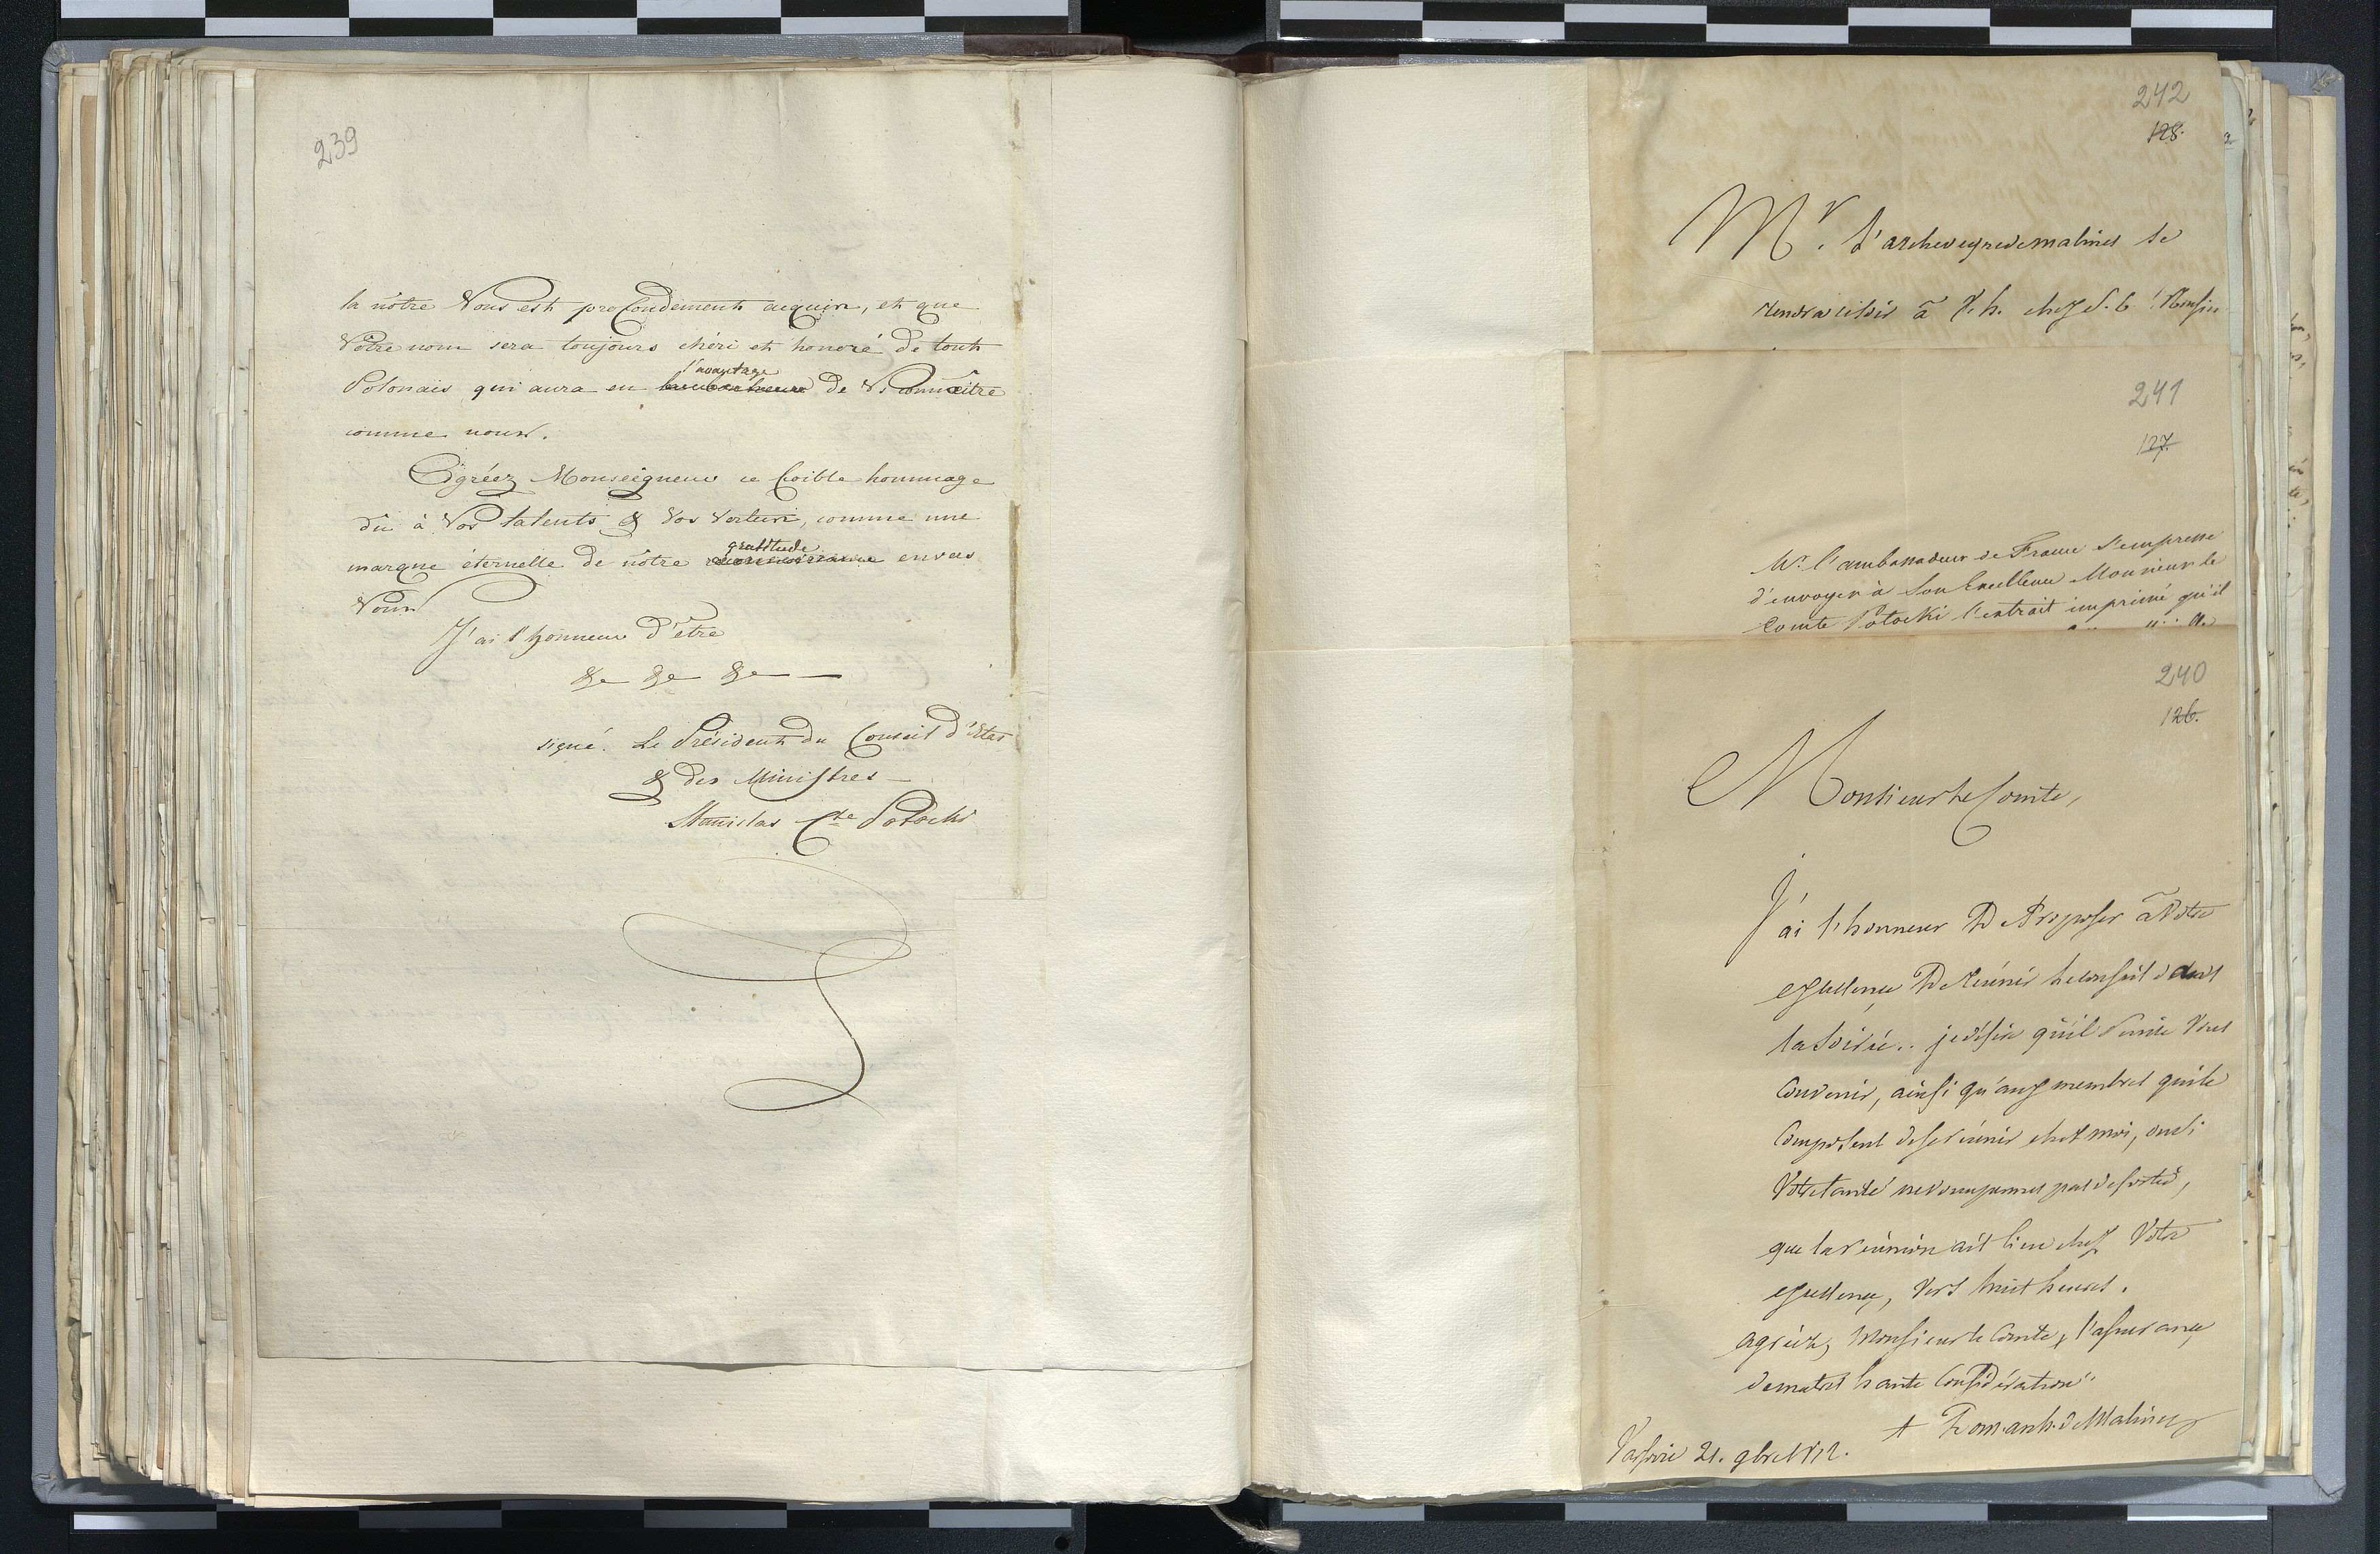 239
la nôtre Vous est profondement acquise, et que
Vôtre nom sera toujours chéri et honoré de tout
l'avantage
Polonais qui aura eu le bonheur de Vs connaitre
comme nous.
Agréez Monseigneur ce foible hommage
dû à Vos talents & Vos Vertus, comme une
gratitude
marque éternelle de nôtre reconnoissance envers
Vous
J'ai l'honneur d'être
&c &c &c —
signé. Le Président du Conseil d'Etat
& des Ministres —
Stanislas Cte Potocki
242
128.
Mr. l'archeveque de malines se
rendra ce soir à 7. h. chez S. E. Monsieur
241
127.
Mr. l'ambassadeur de France s'empresse
d'envoyer à Son Excellence Monsieur le
Comte Potocki l'extrait imprimé qu'il
240
126.
Monsieur le Comte,
J'ai l'honneur De Proposer à Votre
excellence De réunir le conseil dans
la soirée.. je désire qu'il Puisse Vous
Convenir, ainsi qu'aux membres qui le
Composent de se réunir chez moi, ou si
Votre santé ne vous permet pas de sortir,
que la réunion ait lieu chez Votre
excellence, vers huit heures.
agréez, Monsieur le Comte, l'assurance
de ma très haute Considération..
+ Dom. arch. de Malines
Varsovie 21. 9bre 1812.